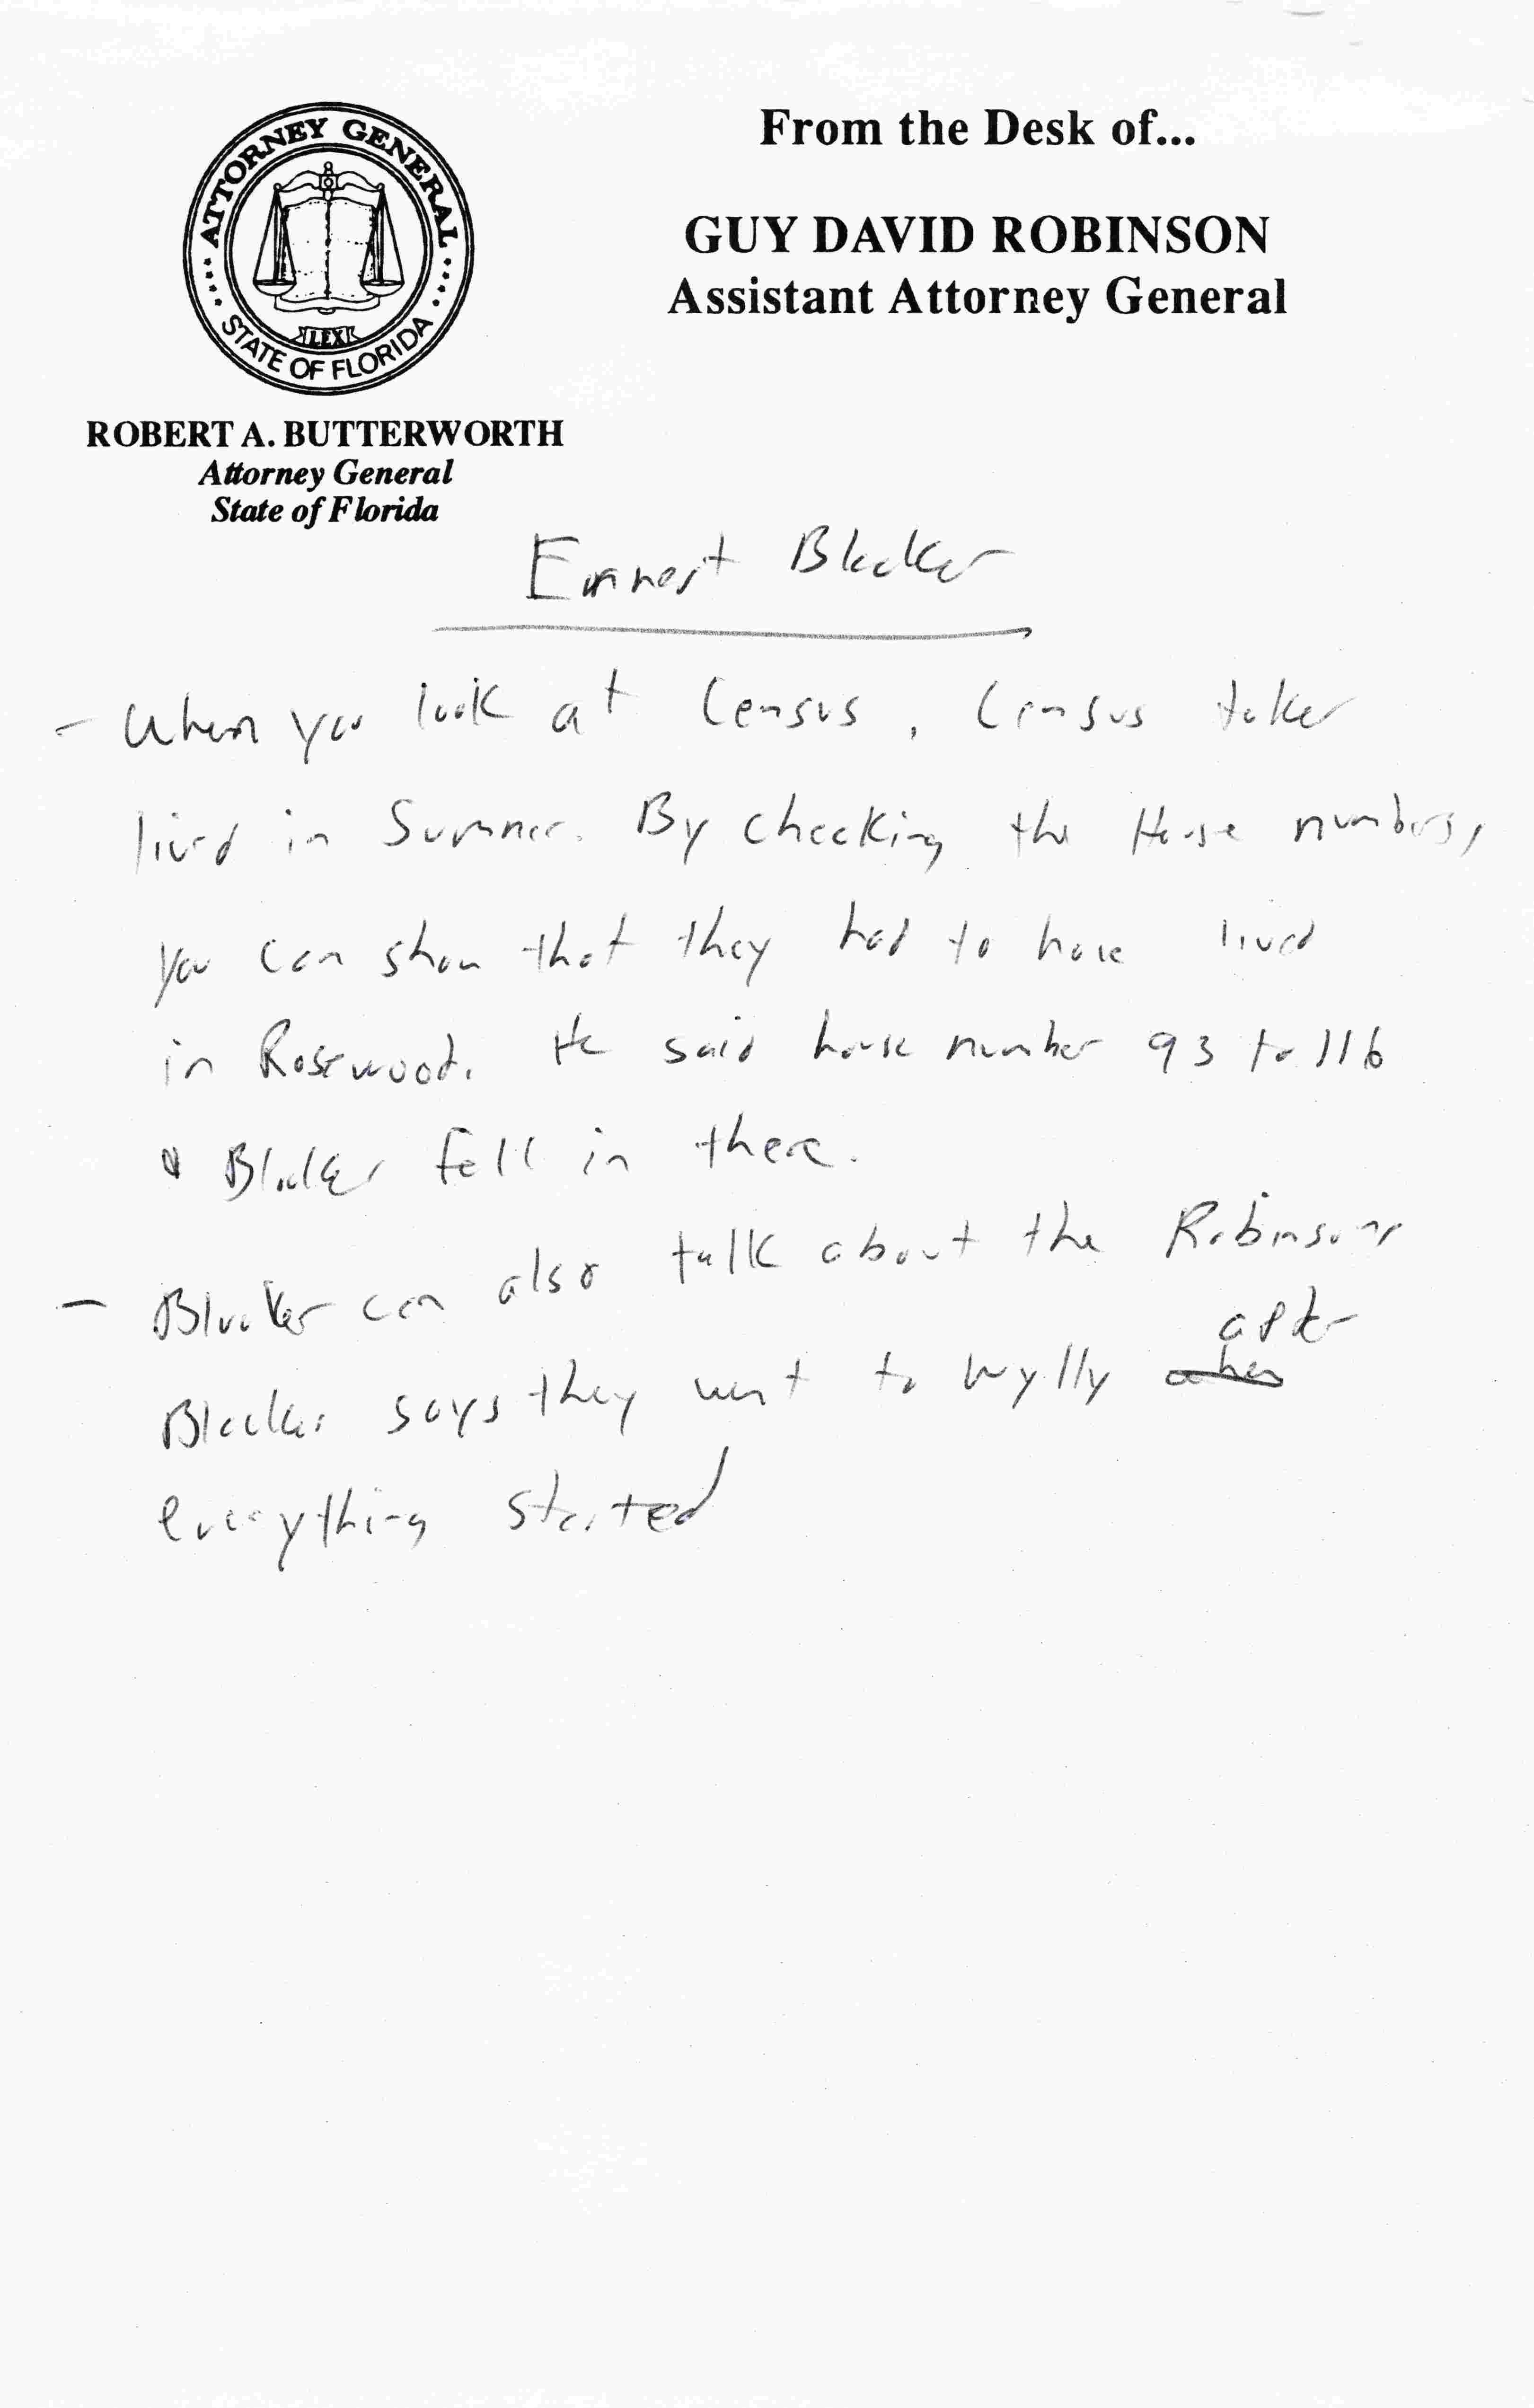 ATTORNEY GENERAL
STATE OF FLORIDA
LEX
From the Desk of...
GUY DAVID ROBINSON
Assistant Attorney General
ROBERT A. BUTTERWORTH
Attorney General
State of Florida
Ernnest Blocker
- When you look at Census, Census taker
lived in Sumner. By checking the House numbers,
you can show that they had to have lived
in Rosewood. He said house number 93 to 116
& Blocker fell in there.
- Blocker can also talk about the Robinsons
after
Blocker says they went to Wylly when
everything started